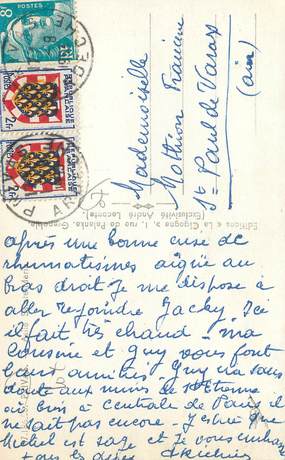 Mademoiselle
Mathon Francine
St Paul de Varax
(Ain)
Editions « La Cigogne », 1, rue de Palanka, Grenoble
(Exclusivité André Lecomte)
REPUBLIQUE FRANCAISE
2F
REPUBLIQUE FRANCAISE
après une bonne crise de
rhumatismes aigüe au
bras droit Je me dispose à
aller rejoindre Jacky. Ici
il fait très chaud - ma
cousine et Guy vous font
leurs amitiés. Guy ira sans
doute aux mines de St Etienne
ou bien à Centrale de Paris il
ne sait pas encore. J'espère que
Michel est sage et Je vous embrasse
tous les deux